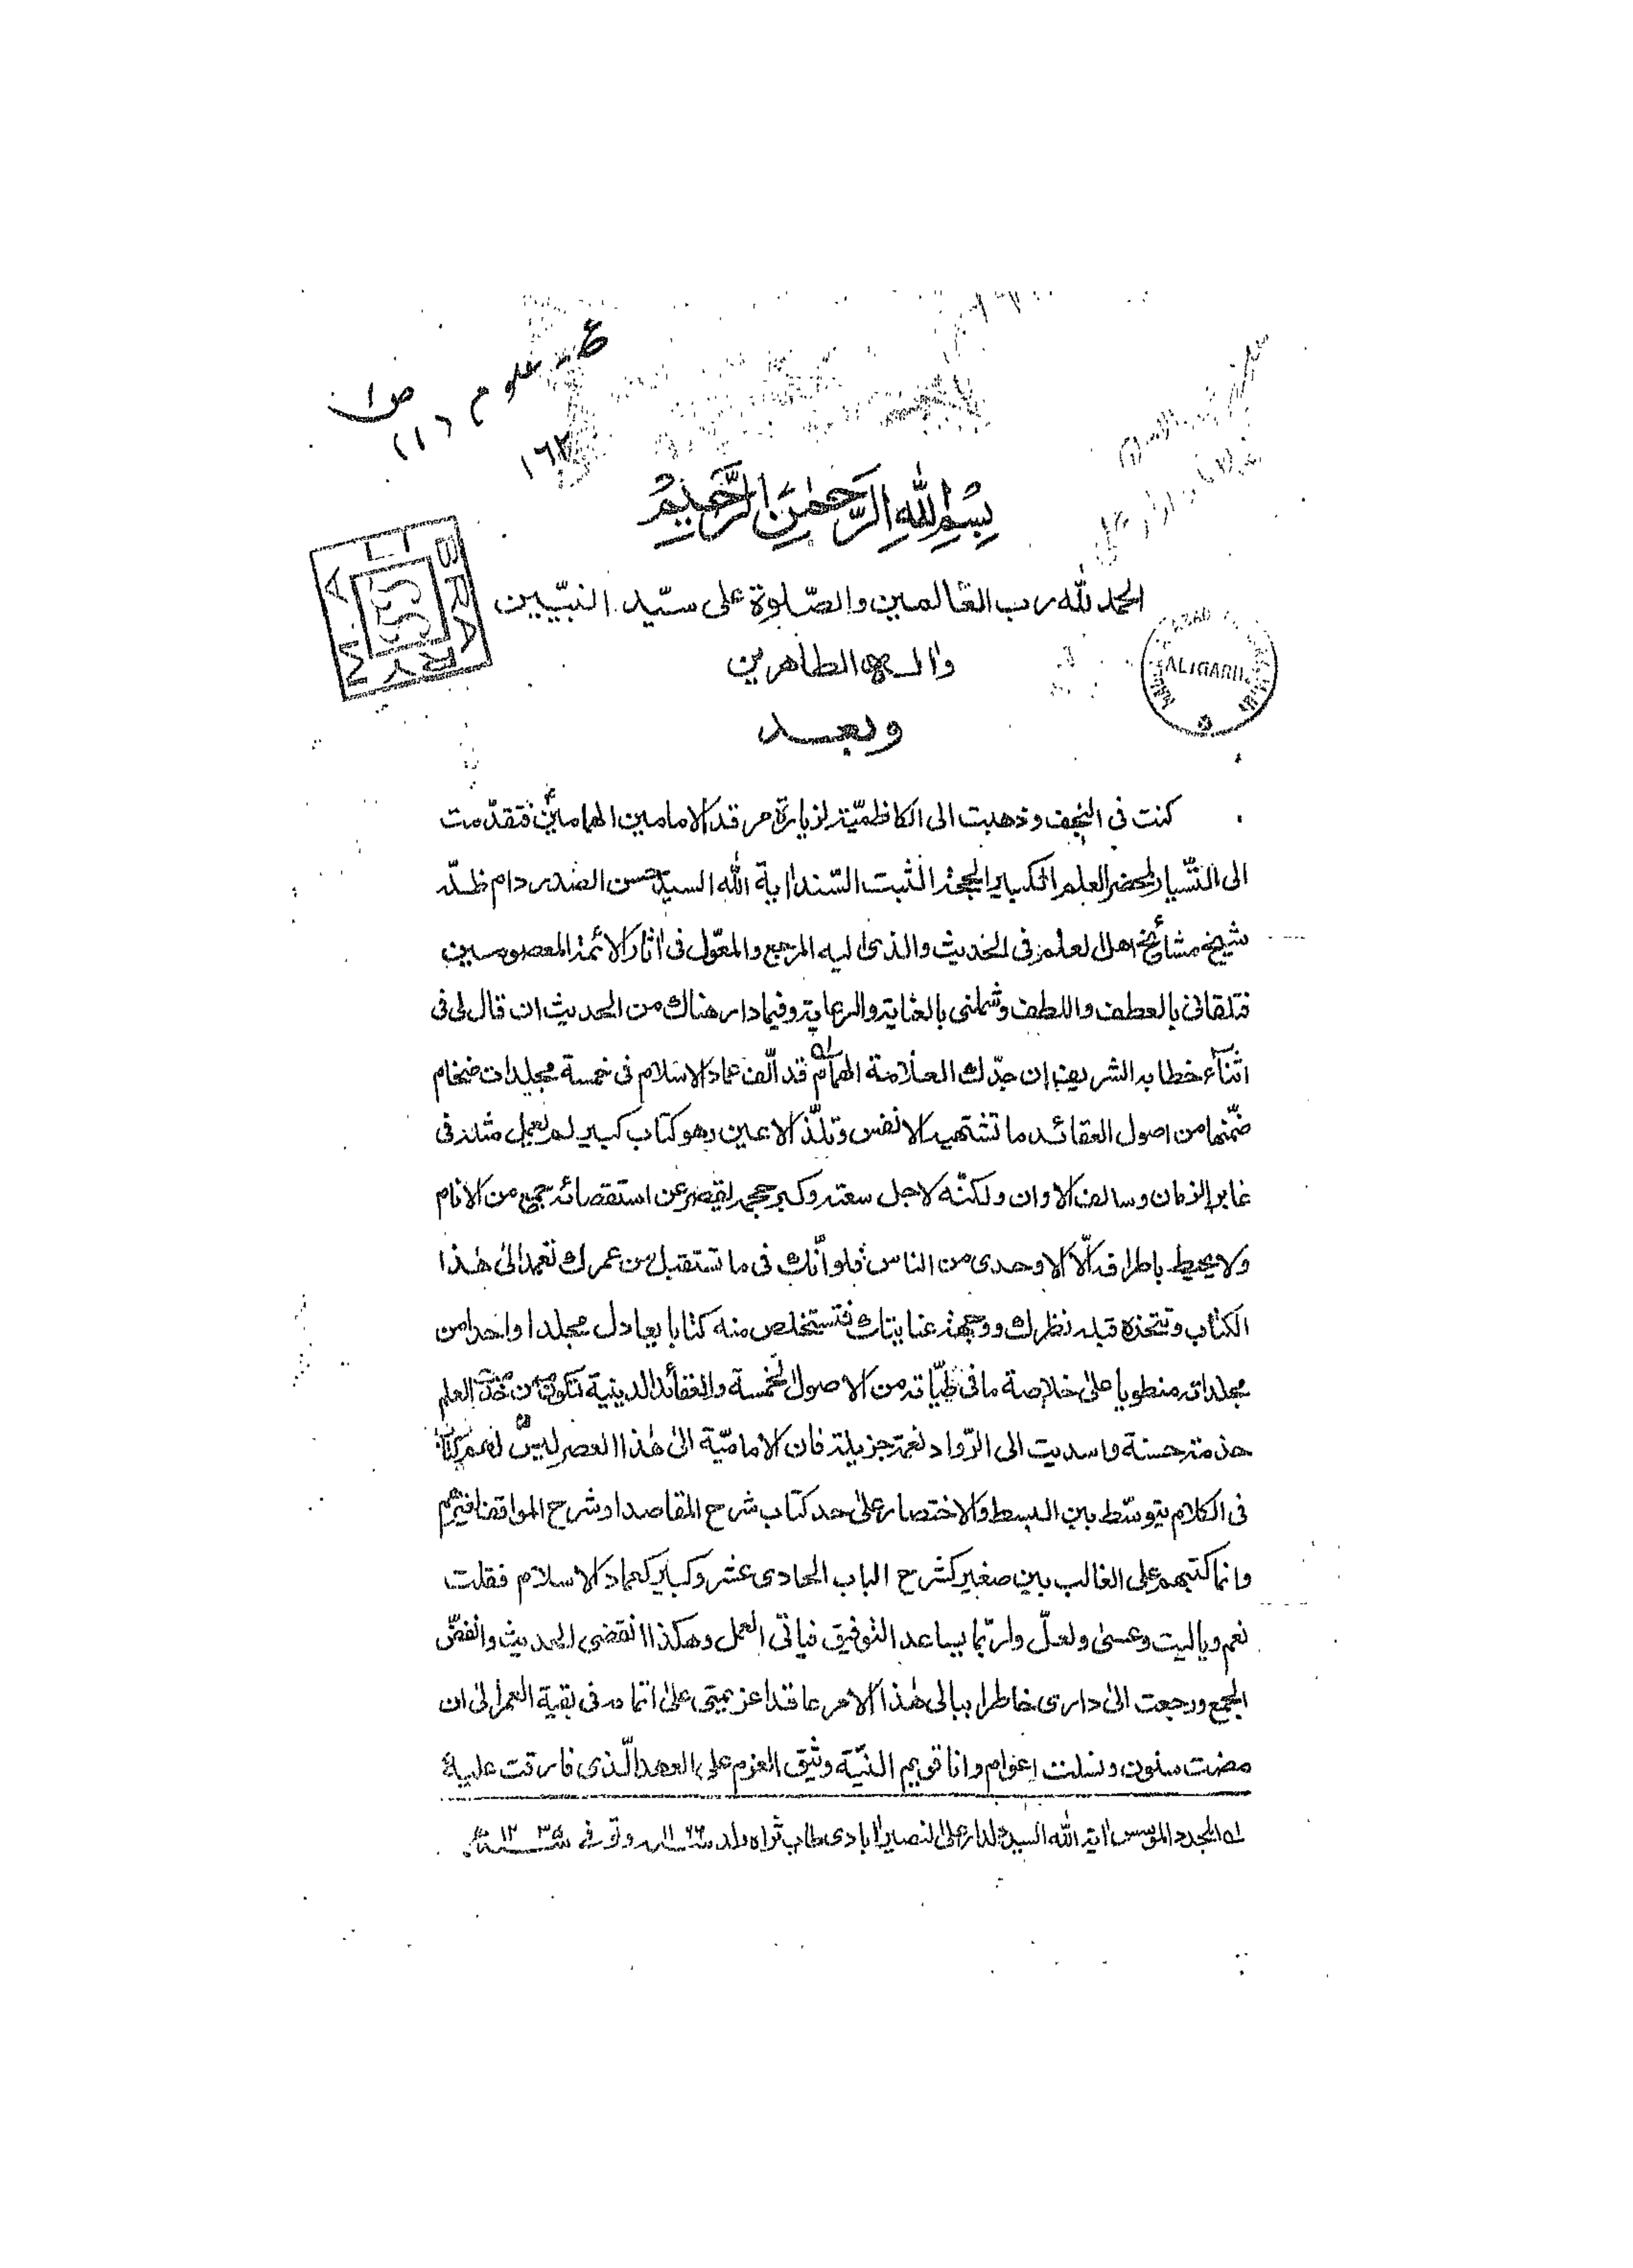 بِسْمِ اللهِ الرَّحْمٰنِ الرَّحِيْمِ
الحمد لله رب العالمين والصّلوة على سيّد النبيّين
واله الطاهرين
وبعد
كنت فى النجف وذهبت الى الكاظميّة لزيارة مرقد الامامين الهمامين فتقدّمت
الى التشيار لمحضر العلم الكبير الحجة الثبت السّند اية الله السيد حسن الصدر دام ظلّه
شيخ مشائخ اهل العلم فى الحديث والذى اليه المرجع والمعوّل فى اثار الائمة المعصومين
فتلقانى بالعطف واللطف وشملنى بالعناية والرعاية وفيما دار هناك من الحديث ان قال لى فى
اثناء خطابه الشريف ان جدّك العلّامة الهمام له قد الّف عماد الاسلام فى خمسة مجلدات ضخام
ضمّنها من اصول العقائد ما تشتهيه الانفس وتلذّ الاعين وهو كتاب كبير لم يعمل مثله فى
غابر الزمان وسالف الاوان ولكنّه لاجل سعته وكبر حجمه يقصر عن استقصائه جميع من الانام
ولا يحيط باطرافه الّا الاوحدى من الناس فلو انّك فى ما تستقبل من عمرك تعمد الىٰ هٰذا
الكتاب وتتخذه قبلة نظرك ووجهة عنايتك فتستخلص منه كتابا يعادل مجلدا واحدا من
مجلداته منطويا علىٰ خلاصة ما فى طيّاته من الاصول الخمسة والعقائد الدينية تكون ممن خدم العلم
خدمة حسنة واسديت الى الرّواد نعمة جزيلة فان الاماميّة الىٰ هٰذا العصر ليس لهم كتاب
فى الكلام يتوسّط بين البسط والاختصار علىٰ حد كتاب شرح المقاصد او شرح المواقف
وانما كتبهم على الغالب بين صغير كشرح الباب الحادى عشر وكبير كعماد الاسلام فقلت
نعم وياليت وعسىٰ ولعلّ ولربّما يساعد التوفيق فياتى العمل وهكذا انقضى الحديث وانفضّ
الجمع ورجعت الىٰ دارى خاطرا ببالى هٰذا الامر عاقدا عزيمتى علىٰ اتمامه فى بقية العمر الىٰ ان
مضت سنون ونسلت اعوام وانا قويم النيّة وثيق العزم على العهد الّذى فارقت عليه
له المجدد المؤسس اية الله السيد دلدار على النصير ابادى طاب ثراه ولد سنة ١١٦٦ وتوفى سنة ١٢٣٥
ALIGARH
١٦٢